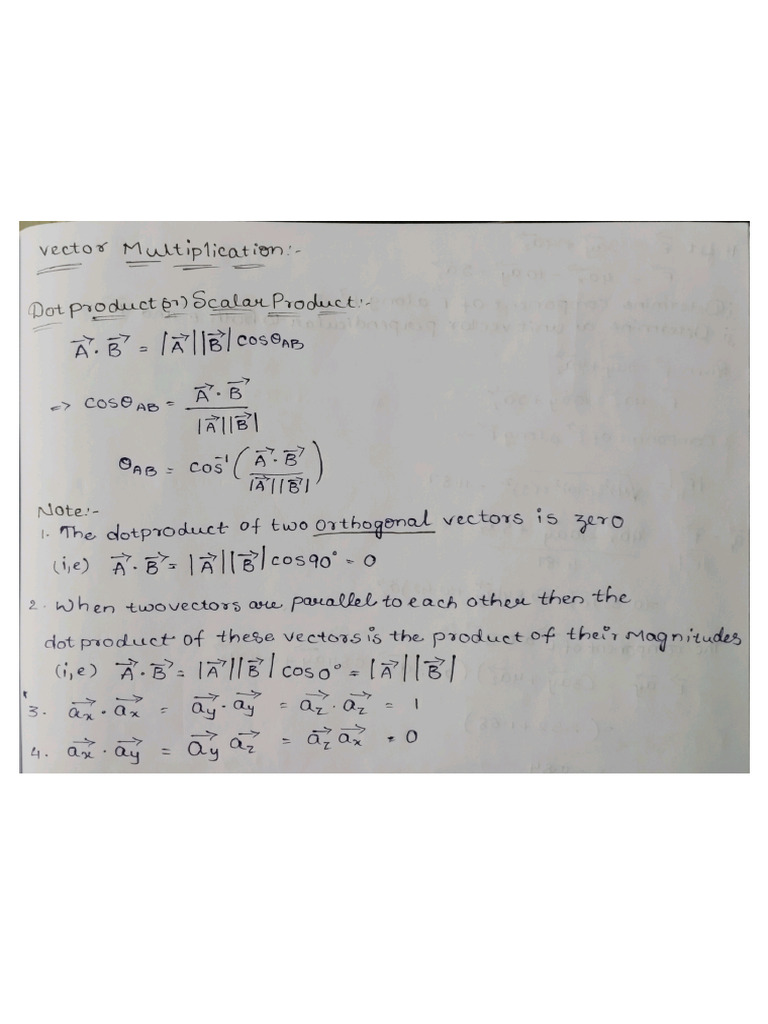 Vector Multiplication:-
Dot product (or) Scalar Product:-
A⃗ · B⃗ = |A⃗||B⃗| cosθ_AB
=> cosθ_AB = (A⃗ · B⃗) / (|A⃗||B⃗|)
θ_AB = cos⁻¹ ( (A⃗ · B⃗) / (|A⃗||B⃗|) )
Note:-
1. The dotproduct of two orthogonal vectors is zero
(i,e) A⃗ · B⃗ = |A⃗||B⃗| cos90° = 0
2. When two vectors are parallel to each other then the
dot product of these vectors is the product of their Magnitudes
(i,e) A⃗ · B⃗ = |A⃗||B⃗| cos0° = |A⃗||B⃗|
3. a⃗x · a⃗x = a⃗y · a⃗y = a⃗z · a⃗z = 1
4. a⃗x · a⃗y = a⃗y a⃗z = a⃗z a⃗x = 0